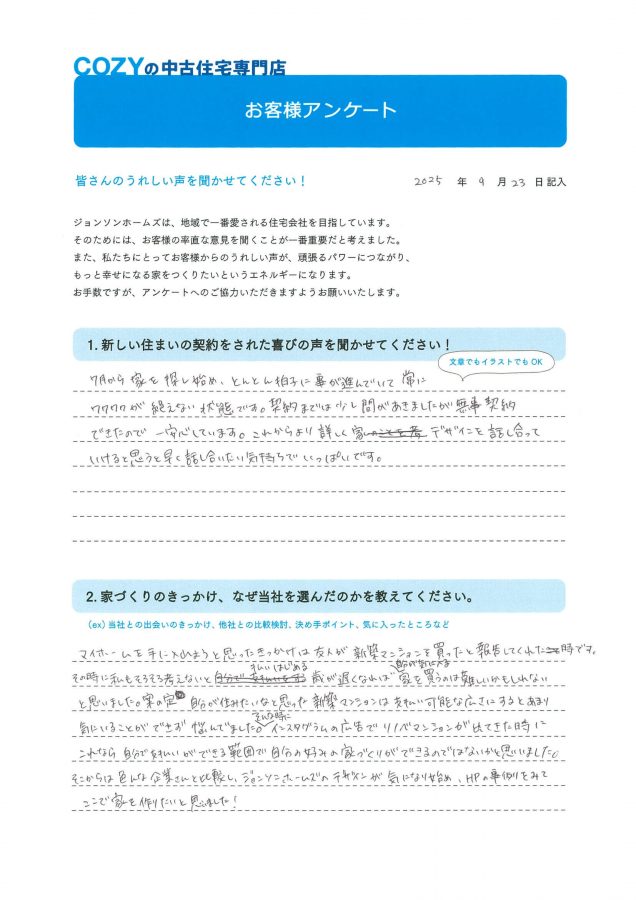 COZYの中古住宅専門店
お客様アンケート
皆さんのうれしい声を聞かせてください！
2025 年 9 月 23 日 記入
ジョンソンホームズは、地域で一番愛される住宅会社を目指しています。
そのためには、お客様の率直な意見を聞くことが一番重要だと考えました。
また、私たちにとってお客様からのうれしい声が、頑張るパワーにつながり、
もっと幸せになる家をつくりたいというエネルギーになります。
お手数ですが、アンケートへのご協力いただきますようお願いいたします。
1. 新しい住まいの契約をされた喜びの声を聞かせてください！
文章でもイラストでも OK
7月から家を探し始め、とんとん拍子に事が進んでいて常に
ワクワクが絶えない状態です。契約までは少し間があきましたが無事契約
できたので一安心しています。これからより詳しく家のことを デザインを話し合って
いけると思うと早く話し合いたい気持ちでいっぱいです。
2. 家づくりのきっかけ、なぜ当社を選んだのかを教えてください。
（ex）当社との出会いのきっかけ、他社との比較検討、決め手ポイント、気に入ったところなど
マイホームを手に入れようと思ったきっかけは友人が新築マンションを買ったと報告してくれた時です。
その時に私もそろそろ考えないと 払いはじめる 歳が遅くなれば 自分が気に入る 家を買うのは難しいかもしれない
と思いました。案の定 自分が住みたいなと思った新築マンションは支払い可能な広さにするとあまり
気にいることができず 悩んでました。そんな時に インスタグラムの広告でリノベマンションが出てきた時に
これなら自分で支払いができる範囲で自分の好みの家づくりができるのではないかと思いました。
そこからは色んな企業さんと比較し、ジョンソンホームズのデザインが気になり始め、HPの事例をみて
ここで家を作りたいと思いました！